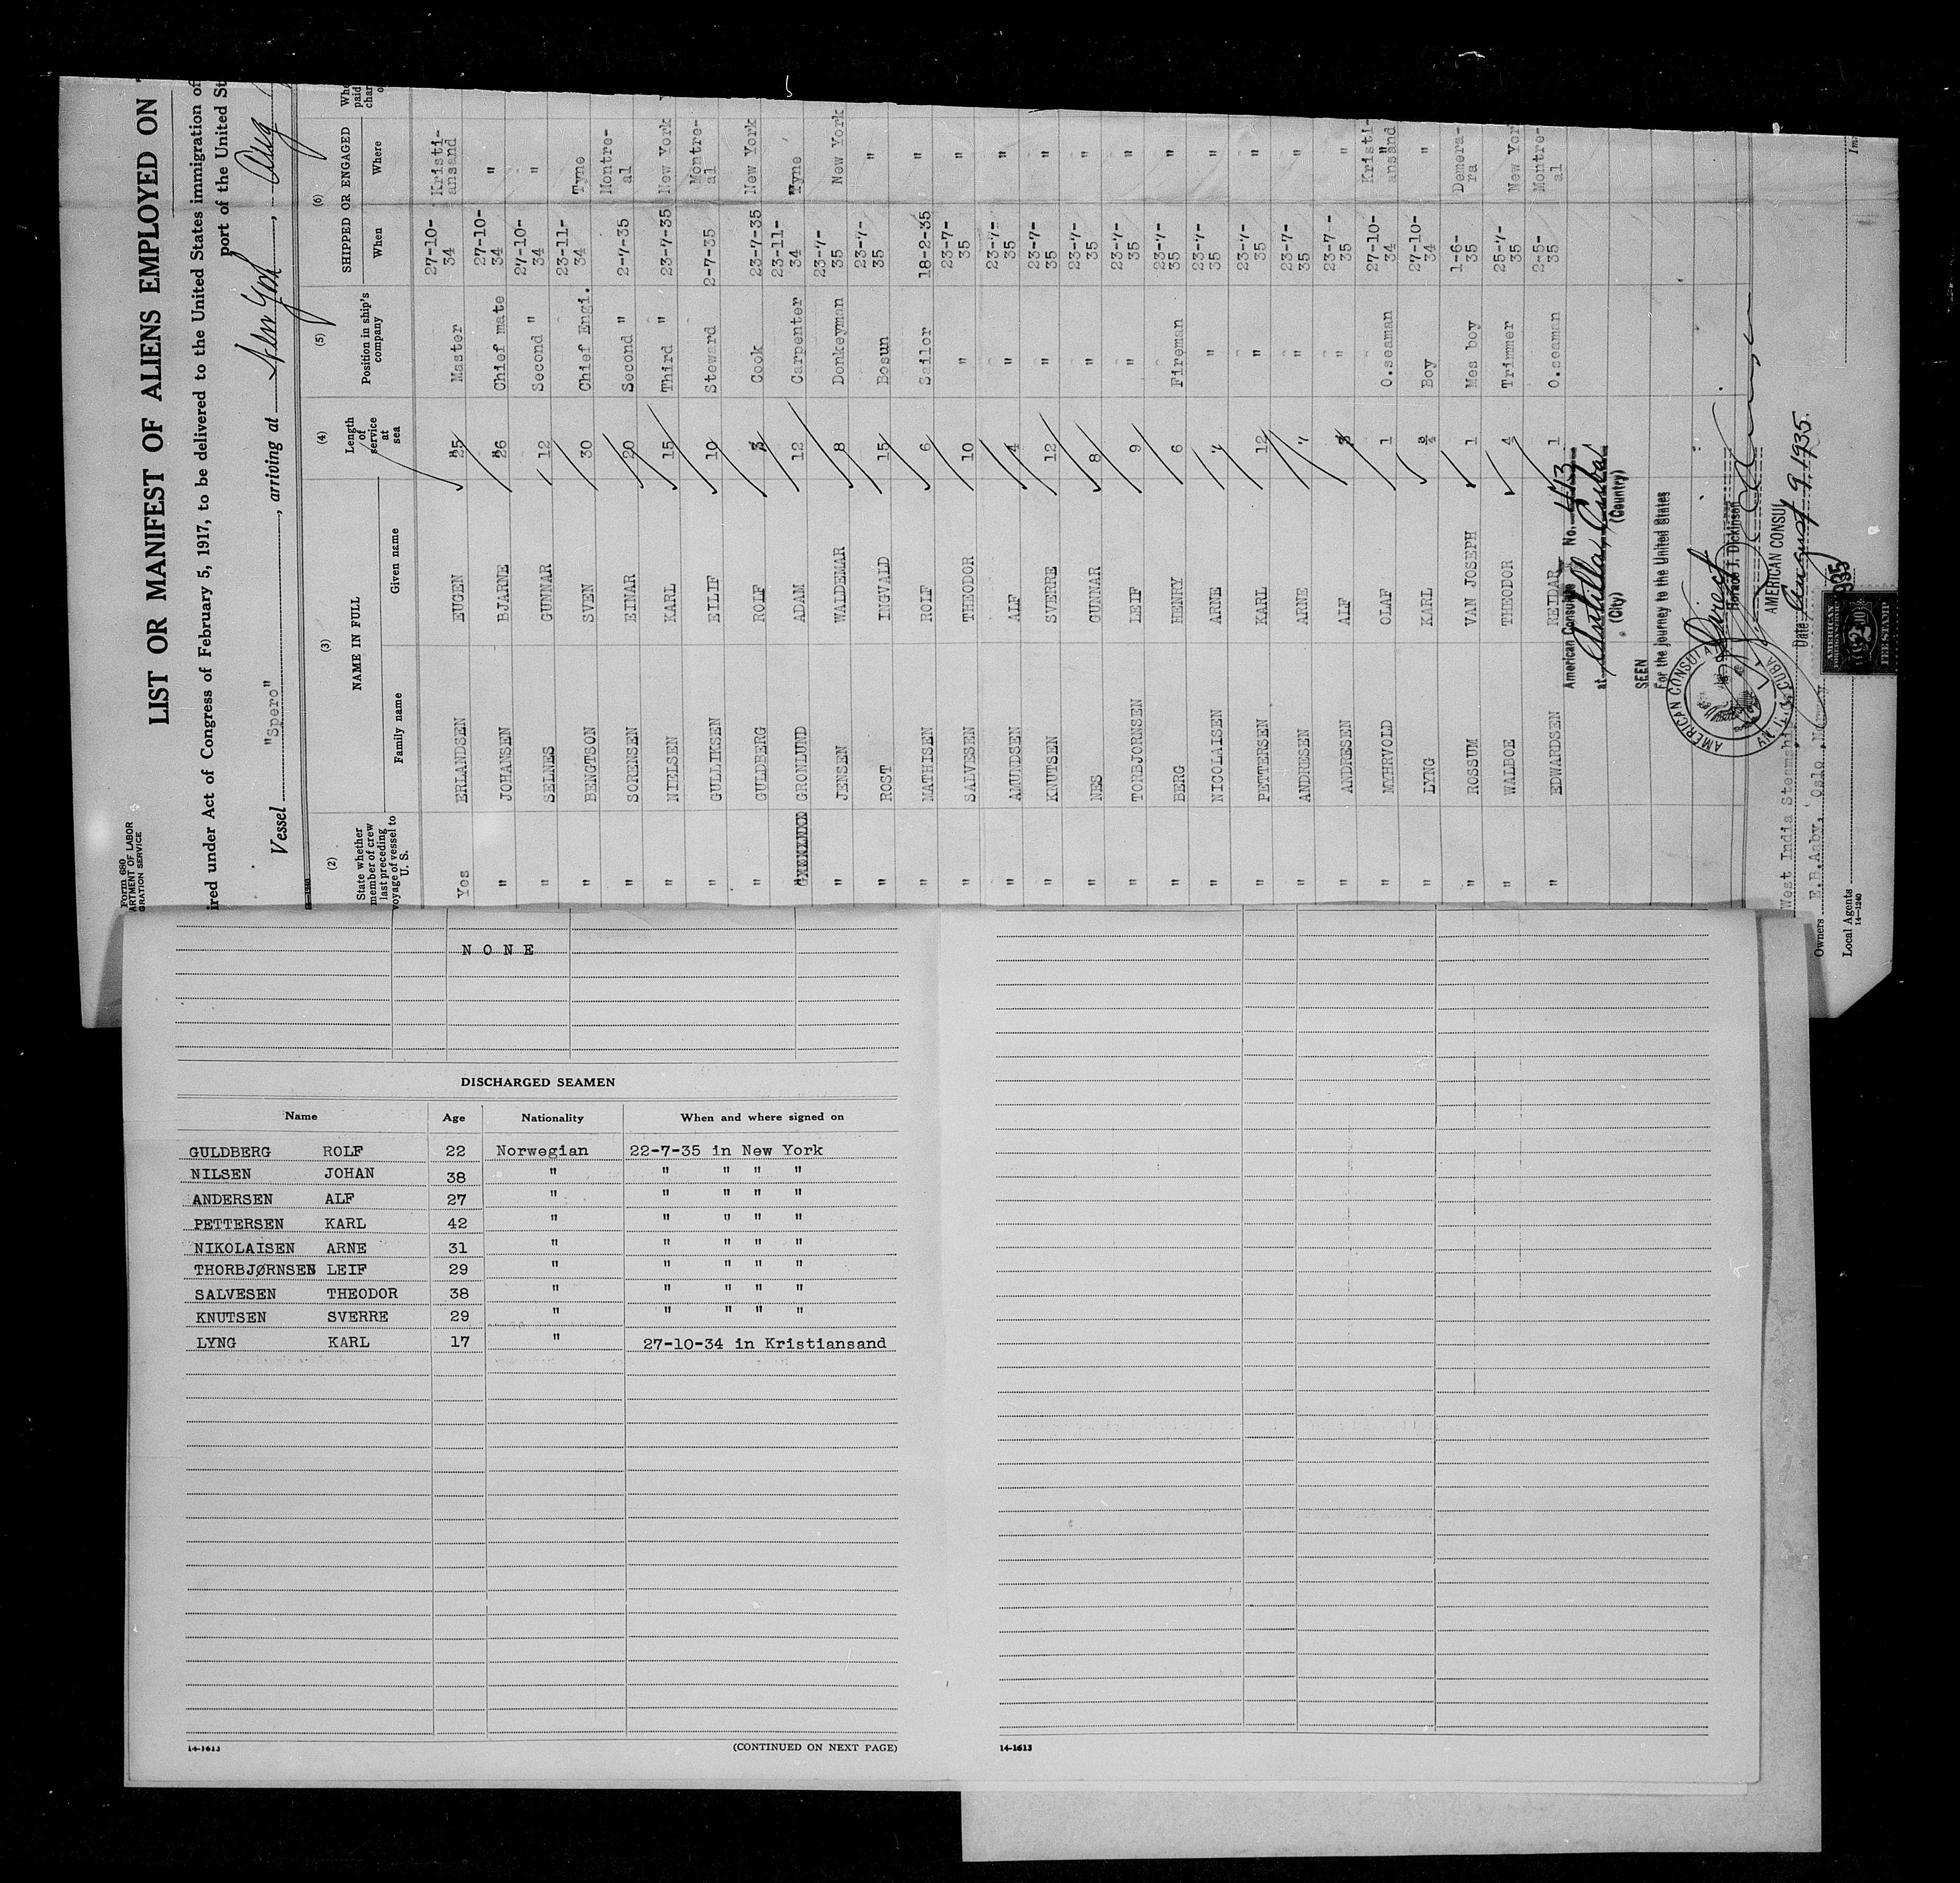 Form 680
ARTMENT OF LABOR
GRATION SERVICE
LIST OR MANIFEST OF ALIENS EMPLOYED ON
ired under Act of Congress of February 5, 1917, to be delivered to the United States immigration of
port of the United St
Vessel "Spero", arriving at New York, Aug
(2) (3) (4) (5) (6)
State whether member of crew last preceding voyage of vessel to U. S.
NAME IN FULL
Family name Given name
Length of service at sea
Position in ship's company
SHIPPED OR ENGAGED
When Where
Yes ERLANDSEN EUGEN 25 Master 27-10-34 Kristi-ansand
" JOHANSEN BJARNE 26 Chief mate 27-10-34 "
" SELNES GUNNAR 12 Second " 27-10-34 "
" BENGTSON SVEN 30 Chief Engi. 23-11-34 Tyne
" SORENSEN EINAR 20 Second " 2-7-35 Montre-al
" NIELSEN KARL 15 Third " 23-7-35 New York
" GULLIKSEN EILIF 10 Steward 2-7-35 Montre-al
" GULDBERG ROLF 3 Cook 23-7-35 New York
" GRONLUND ADAM 12 Carpenter 23-11-34 Tyne
" JENSEN WALDEMAR 8 Donkeyman 23-7-35 New York
" ROST INGVALD 15 Bosun 23-7-35 "
" MATHISEN ROLF 6 Sailor 18-2-35 "
" SALVESEN THEODOR 10 " 23-7-35 "
" AMUNDSEN ALF 4 " 23-7-35 "
" KNUTSEN SVERRE 12 " 23-7-35 "
" NES GUNNAR 8 " 23-7-35 "
" TORBJORNSEN LEIF 9 " 23-7-35 "
" BERG HENRY 6 Fireman 23-7-35 "
" NICOLAISEN ARNE " " 23-7-35 "
" PETTERSEN KARL 12 " 23-7-35 "
" ANDRESEN ARNE " " 23-7-35 "
" ANDRESEN ALF 3 " 23-7-35 "
" MYHRVOLD OLAF 1 O.seaman 27-10-34 Kristi-ansand
" LYNG KARL 3/4 Boy 27-10-34 "
" ROSSUM VAN JOSEPH 1 Mes boy 1-6-35 Demera-ra
" WALBOE THEODOR 4 Trimmer 25-7-35 New York
" EDWARDSEN REIDAR 1 O.seaman 2-5-35 Montre-al
American Consulate No. 413
at Antilla, Cuba
(City) (Country)
SEEN
For the journey to the United States
Direct
Horace J. Dickinson
AMERICAN CONSUL
Date August 9, 1935.
AMERICAN
FEE STAMP
West India Steamship
Owners E.B.Aaby, Oslo, Norway
Local Agents
14-1240
NONE
DISCHARGED SEAMEN
Name Age Nationality When and where signed on
GULDBERG ROLF 22 Norwegian 22-7-35 in New York
NILSEN JOHAN 38 " " " " "
ANDERSEN ALF 27 " " " " "
PETTERSEN KARL 42 " " " " "
NIKOLAISEN ARNE 31 " " " " "
THORBJØRNSEN LEIF 29 " " " " "
SALVESEN THEODOR 38 " " " " "
KNUTSEN SVERRE 29 " " " " "
LYNG KARL 17 " 27-10-34 in Kristiansand
14-1613 (CONTINUED ON NEXT PAGE)
14-1613